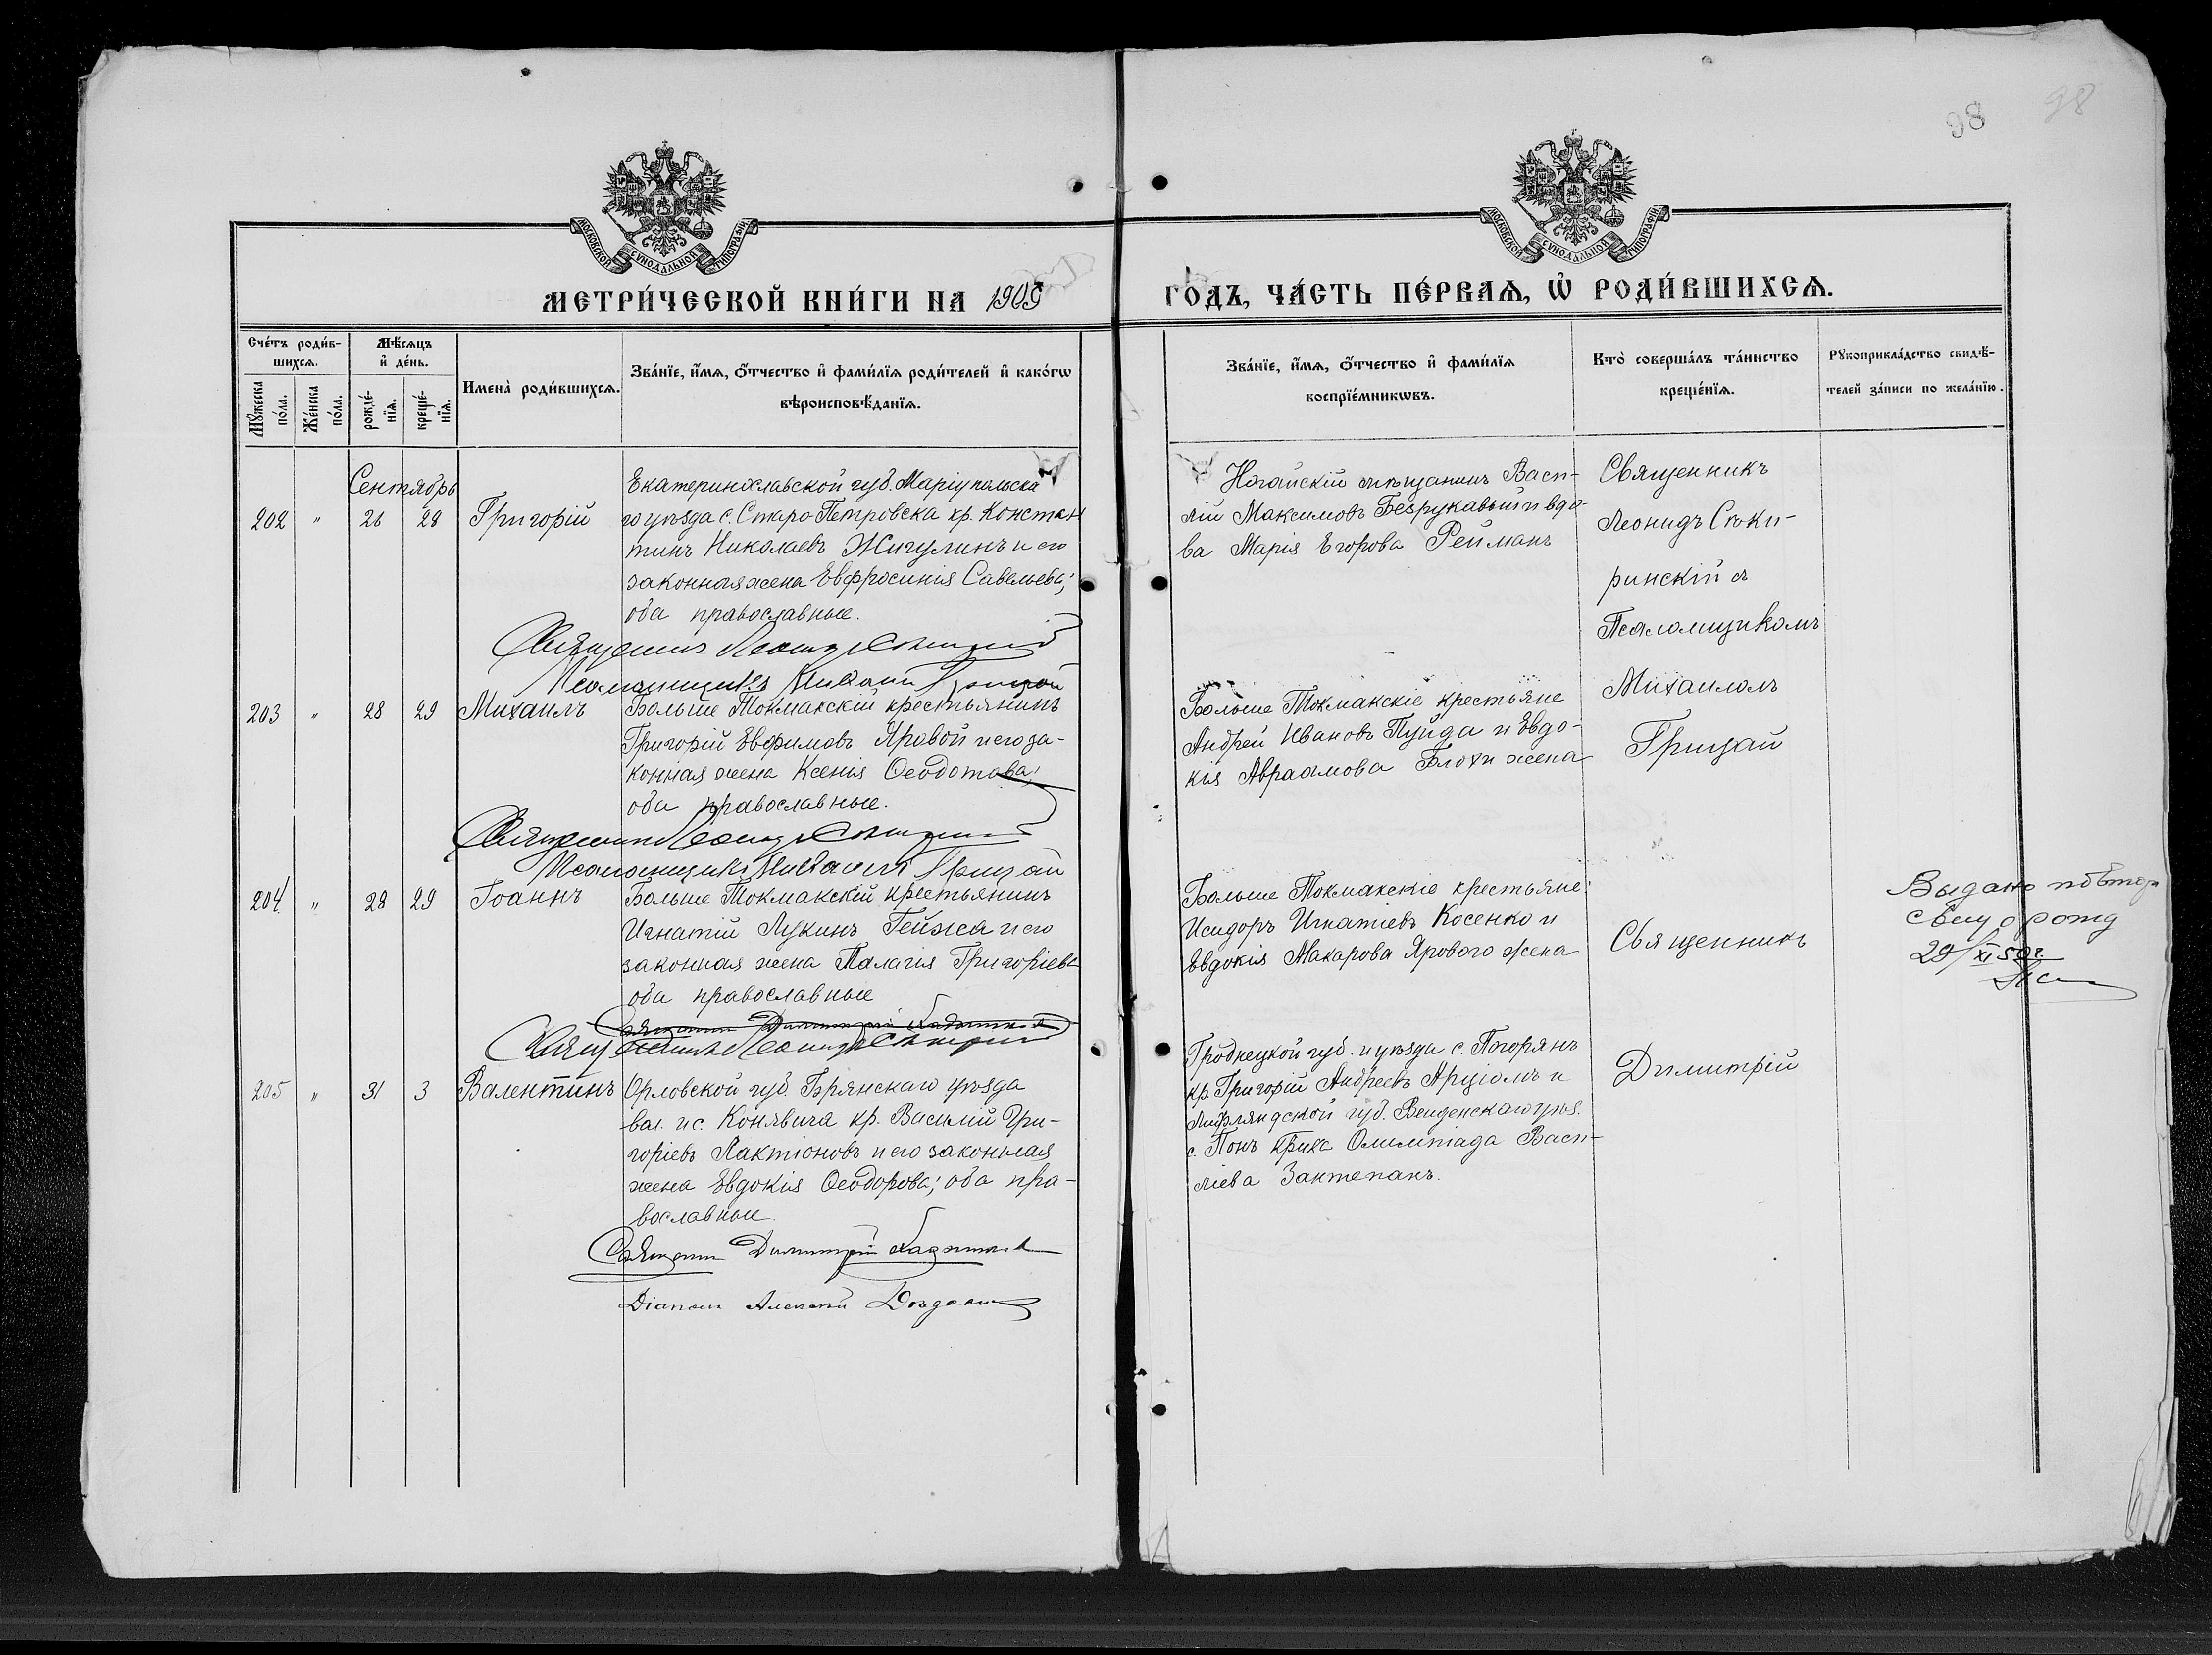 98
98
МОСКОВСКОЙ СѴНОДАЛЬНОЙ ТИПОГРАФІИ
МОСКОВСКОЙ СѴНОДАЛЬНОЙ ТИПОГРАФІИ
МЕТРИ́ЧЕСКОЙ КНИ́ГИ НА 1909
ГОДЪ, ЧА́СТЬ ПЕ́РВАѦ, Ѡ РОДИ́ВШИХСѦ.
Сче́тъ роди́в-
шихсѧ.
Мꙋ́жеска по́ла.
Же́нска по́ла.
Мѣ́сѧцъ
и де́нь.
рожде́-
нїѧ.
креще́-
нїѧ.
Имена̀ роди́вшихсѧ.
Зва́нїе, и́мѧ, ѻ́тчество и фами́лїѧ роди́телей и како́гѡ
вѣроисповѣ́данїѧ.
Зва́нїе, и́мѧ, ѻ́тчество и фами́лїѧ
воспрїе́мникѡвъ.
Кто̀ соверша́лъ та́инство
креще́нїѧ.
Рꙋкоприкла́дство свидѣ́-
телей за́писи по жела́нїю.
Сентябрь
202 " 26 28 Григорій
Екатеринославской губ. Маріупольска
го уѣзда с. Старо-Петровска кр. Констан
тинъ Николаевъ Жигулинъ и его
законная жена Евфросинія Савельева;
оба православные.
Священникъ Леонидъ
Псаломщикъ Михаилъ Грицай
Ногайскій мѣщанинъ Васи-
лій Максимовъ Безрукавый и вдо-
ва Марія Егорова Рейманъ
Священникъ
Леонидъ Стоки-
ринскій съ
Псаломщикомъ
Михаиломъ
Грицай
203 " 28 29 Михаилъ
Больше Токмакскій крестьянинъ
Григорій Евфимовъ Яровой и его за-
конная жена Ксенія Ѳеодотова;
оба православные.
Священникъ Леонидъ
Псаломщикъ Михаилъ Грицай
Больше Токмакскіе крестьяне
Андрей Ивановъ Пуйда и Евдо-
кія Авраамова Блохи жена
204 " 28 29 Іоаннъ
Больше Токмакскій крестьянинъ
Игнатій Лукинъ Гейжа и его
законная жена Палагія Григоріева
оба православные
Священникъ Димитрій
Священникъ Леонидъ
Больше Токмакскіе крестьяне:
Исидоръ Игнатіевъ Косенко и
Евдокія Макарова Ярового жена
Священникъ
Выдано повтор
свид о рожд
29/XI 50 г.
205 " 31 3 Валентинъ
Орловской губ. Брянскаго уѣзда
вол. и с. Конявича кр. Василій Гри-
горіевъ Лактіоновъ и его законная
жена Евдокія Ѳеодорова; оба пра-
вославные.
Священникъ Димитрій
Діаконъ Алексѣй
Гроднецкой губ. и уѣзда с. Погорянъ
кр. Григорій Андреевъ Арціомъ и
Лифляндской губ. Венденскаго уѣз.
с. Понъ Крика Олимпіада Васи-
ліева Зактепанъ.
Димитрій